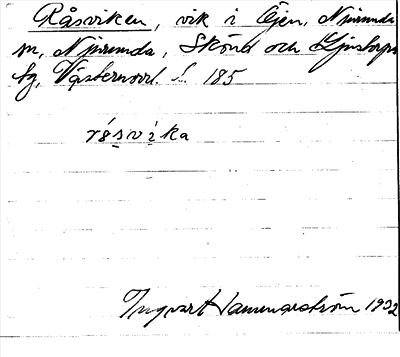 Råsviken, vik i Öjen, Njurunda
sn, Njurunda, Skönd och Ljustorps
tg, Västernorrl. L. 185
råsvika
Ingvar Hammarström 1932